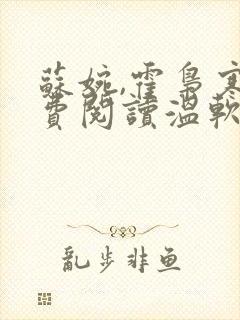 蘇婉,霍梟寒
費閱讀溫軟
亂步非鱼